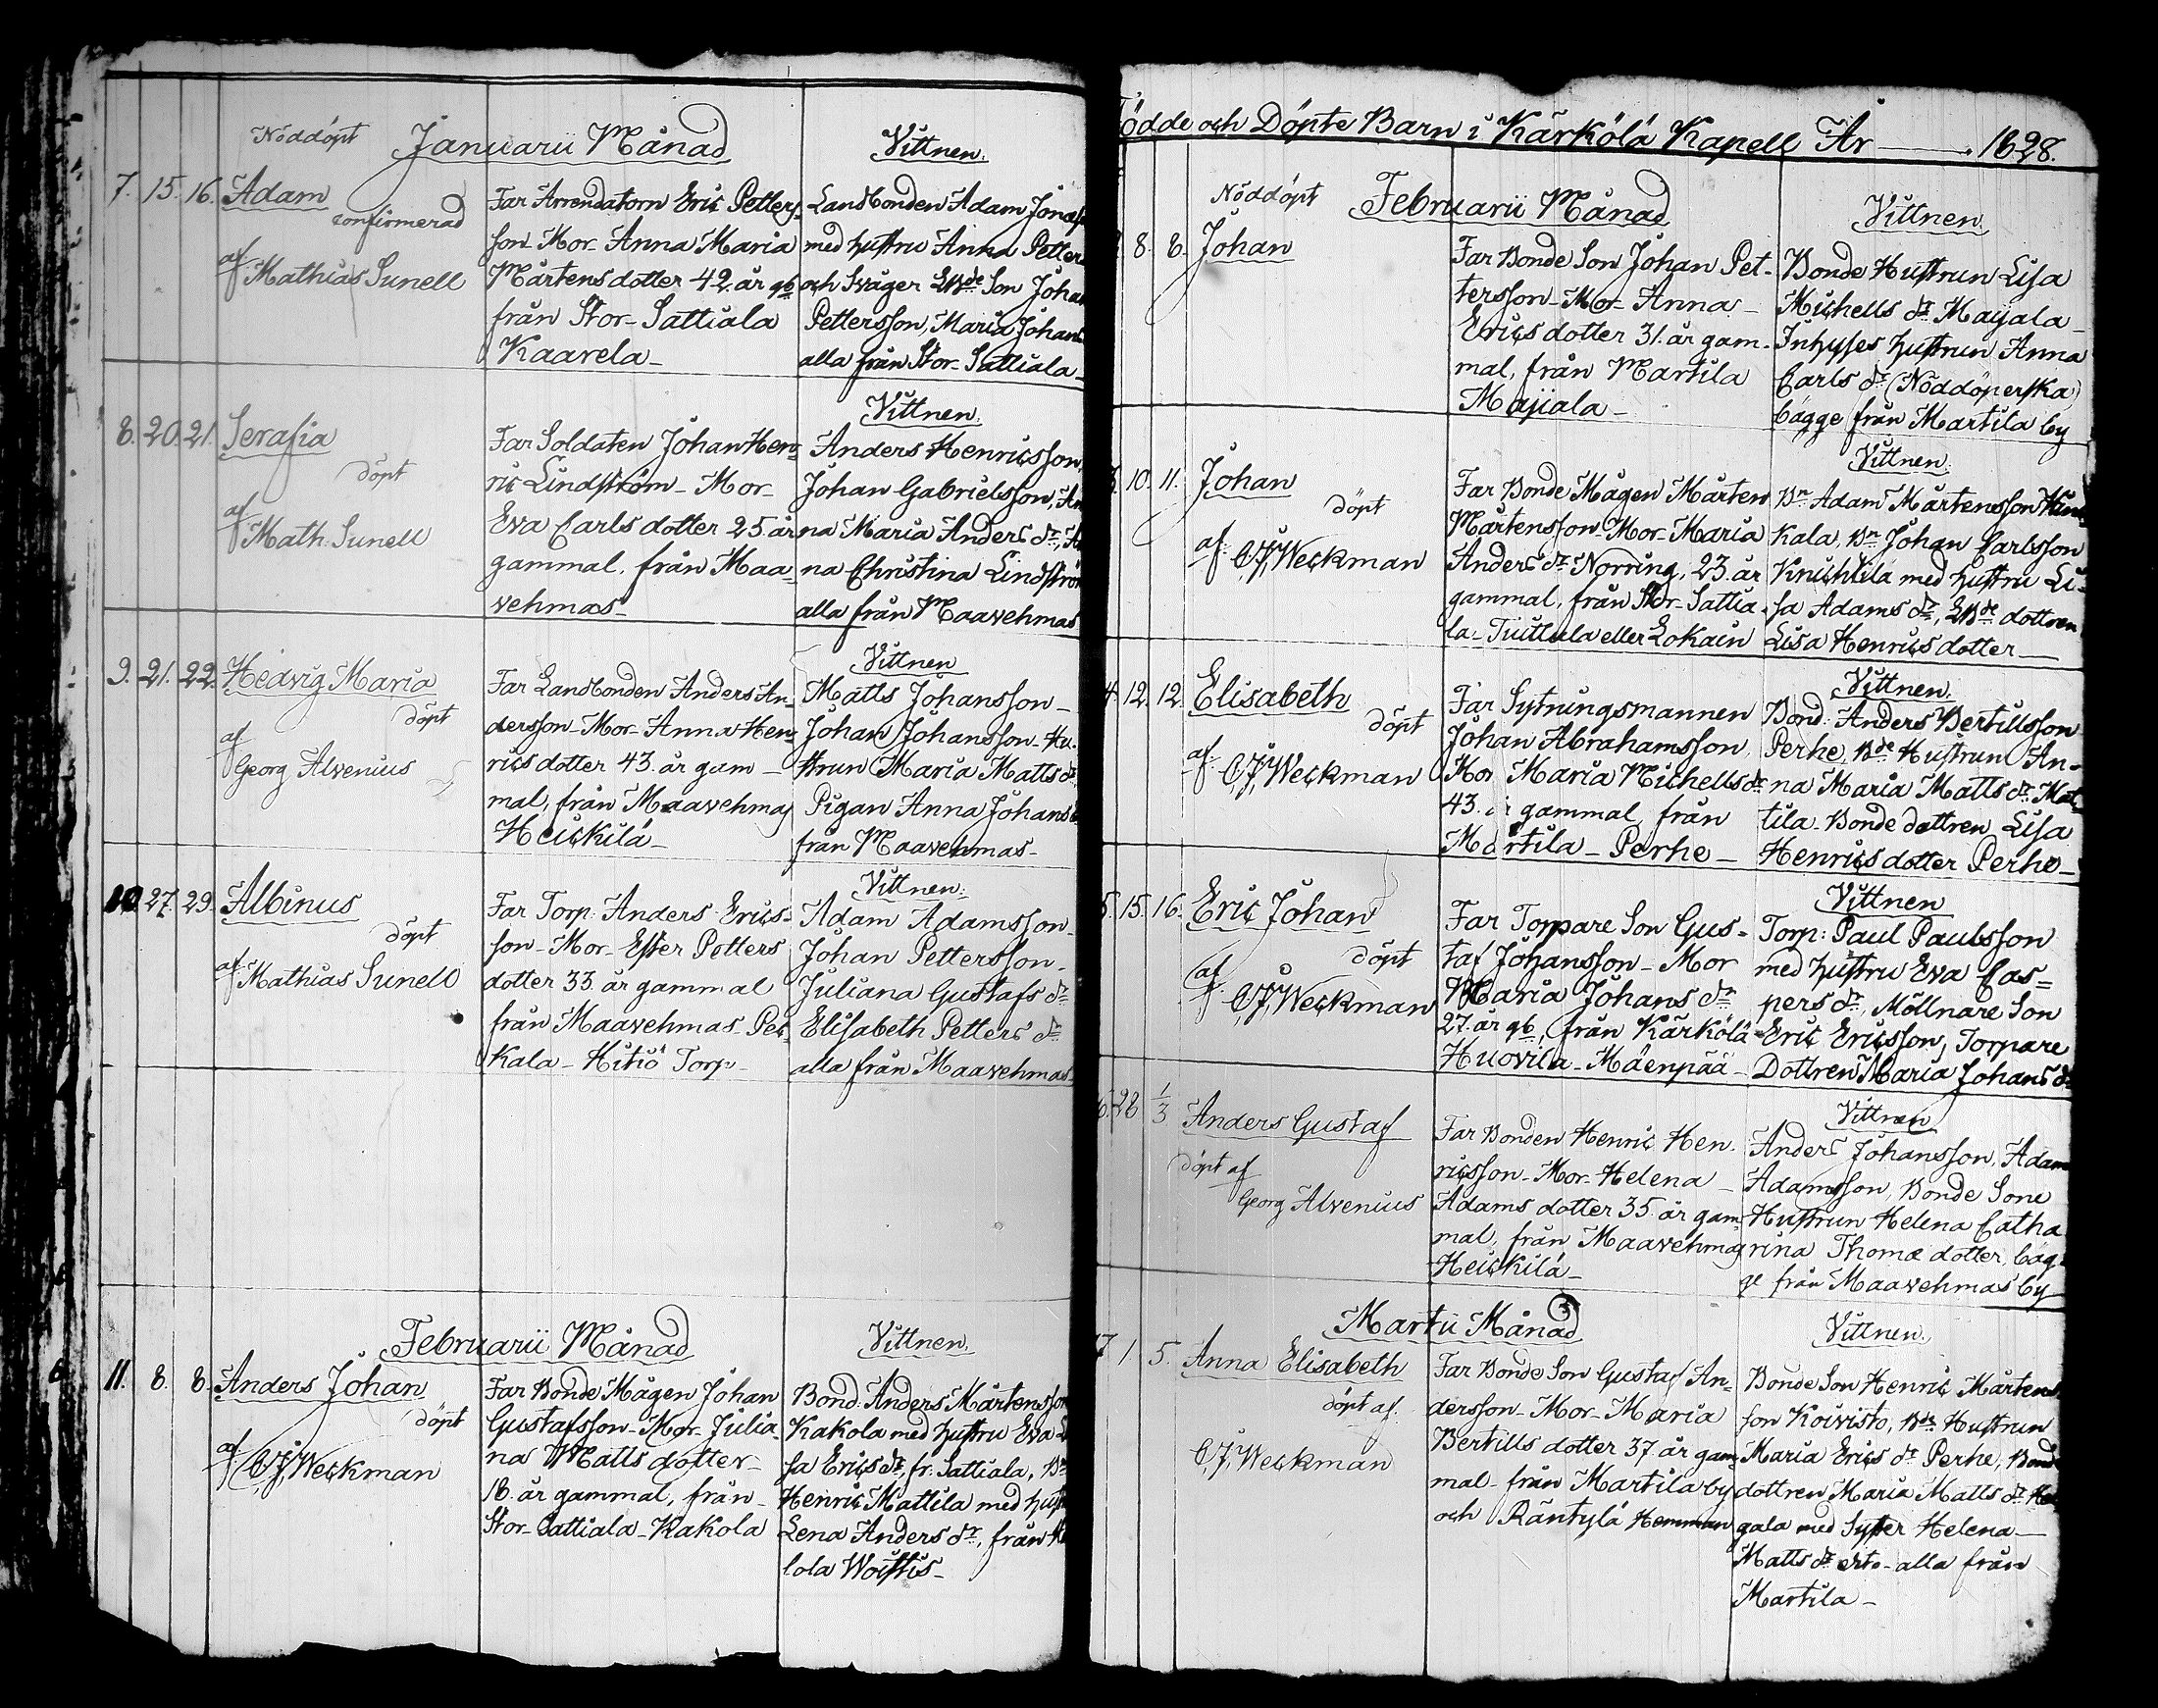 Nöddöpt Januarii Månad Vittnen.
7. 15. 16. Adam
confirmerad
af
Mathias Sunell
Far Arrendatorn Eric Petters-
son Mor Anna Maria
Mårtens dotter 42. år gb
från Stor-Sattiala
Kaavela-
Landbonden Adam
med hustru Anna
och Svåger LBde Son
Pettersson, Maria
alla från Stor-Sattiala-
8. 20. 21. Serafia
döpt
af
Math: Sunell
Far Soldaten Johan Hen-
ric Lindström- Mor-
Eva Carls dotter 25 år
gammal. från Maa-
vehmas-
Vittnen.
Anders Henricsson,
Johan Gabrielsson, An
na Maria Anders dr, A
na Christina Lindström
alla från Maavehmas
9. 21. 22. Hedvig Maria
döpt
af
Georg Alvenius
Far Landbonden Anders An-
dersson-Mor-Anna Hen-
rics dotter 43. år gam-
mal, från Maavehmas
Heickilä-
Vittnen
Matts Johansson-
Johan Johansson-Hu-
strun Maria Matts dr
Pigan Anna Johans
från Maavehmas-
10. 27. 29. Albinus
döpt
af
Mathias Sunell
Far Torp: Anders Erics-
son-Mor-Ester Petters
dotter 33. år gammal
från Maavehmas-Pec-
kala-Hitiö Torp-
Vittnen:
Adam Adamsson-
Johan Pettersson-
Juliana Gustafs dr
Elisabeth Petters dr
alla från Maavehmas-
Februarii Månad Vittnen.
11. 8. 8. Anders Johan
döpt
af
C.J. Weckman
Far Bonde Mågen Johan
Gustafsson-Mor-Julia-
na Matts dotter-
18. år gammal, från-
Stor-Sattiala-Kakola
Bond: Anders Mårtensson
Kakola med hustru Eva
sa Erics dr, fr: Sattiala, Bn
Henric Mattila med
Lena Anders dr, från
lola Woistis-
Födde och Döpte Barn i Kärkölä Kapell År 1828.
Nöddöpt Februarii Månad Vittnen.
8. 8. Johan
Far Bonde Son Johan Pet-
tersson-Mor-Anna-
Erics dotter 31. år gam-
mal, från Martila
Maijala-
Bonde Hustrun Lisa
Michells dr Maijala-
Inhyses hustrun Anna
Carls dr (Nöddöperska)
bägge från Martila by
3. 10. 11. Johan
döpt
af
C.J. Weckman
Far Bonde Mågen Mårten
Mårtensson-Mor-Maria
Anders dr Norring, 23. år
gammal, från Stor-Sattia
la-Tuittula eller Lokain
Vittnen.
Bn Adam Mårtensson
kala, Bn Johan Carlsson
Knichtilä med hustru Li-
sa Adams dr, LBde dottren
Lisa Henrics dotter-
4. 12. 12. Elisabeth
döpt
af
C.J. Weckman
Far Sytningsmannen
Johan Abrahamsson,
Mor Maria Michells dr
43. år gammal från
Martila-Perhe-
Vittnen.
Bond: Anders Bertillsson
Perhe, Bde Hustrun An-
na Maria Matts dr
tila-Bonde dottren Lisa
Henrics dotter Perhe-
5. 15. 16. Eric Johan
döpt
af
C.J. Weckman
Far Torpare Son Gus-
taf Johansson-Mor
Maria Johans dr
27. år gb, från Kärkölä-
Huovila-Mäenpää-
Vittnen
Torp: Paul Paulsson
med hustru Eva Cas-
pers dr, Möllnare Son
Eric Ericsson, Torpare
Dottren Maria Johans dr
6. 28 1/3 Anders Gustaf
döpt af
Georg Alvenius
Far Bonden Henric Hen-
ricsson-Mor-Helena-
Adams dotter 35. år gam-
mal, från Maavehmas
Heickilä-
Vittnen
Anders Johansson, Adam
Adamsson, Bonde Sone
Hustrun Helena Catha
rina Thomæ dotter, bäg-
ge från Maavehmas by
Martii Månad Vittnen.
7 1. 5. Anna Elisabeth
döpt af.
C.J. Weckman
Far Bonde Son Gustaf An-
dersson-Mor-Maria
Bertills dotter 37. år gam-
mal-från Martila by
och Räntylä Hemman
Bonde Son Henric Mårtens
son Koivisto, Bde Hustrun
Maria Erics dr Perhe, Bonde
dottren Maria Matts dr
gala med Syster Helena-
Matts dr dito-alla från
Martila-